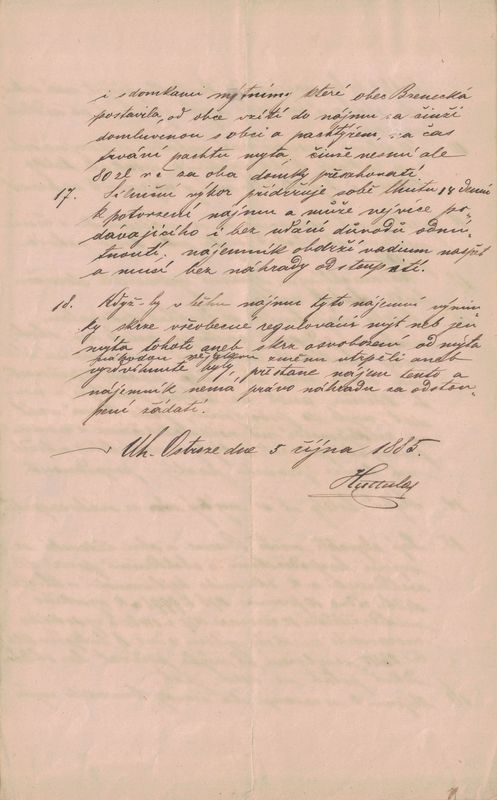 i s domkami mýtními které obec Brenecká
postavila, od obce vzíti do nájmu za činži
domluvenou s obcí a pachtýřem, za čas
trvání pachtu mýta, činže nesmí ale
80 zl r č za oba domky přesahovati.
17. Silniční výbor přidržuje sobě lhůtu 14 denní
k potvrzení nájmu a může nejvíce po-
dávajícího i bez udání důvodů odmí-
tnouti, nájemník obdrží vadium nazpět
a musí bez náhrady odstoupiti.
18. Když-by v běhu nájmu tyto nájemní výmin-
ky skrze všeobecné regulování mýt neb jen
mýta tohoto aneb skrz osvobození od mýta
jakoukoli změnu utrpěti aneb
vyzdvihnuté byly, přestane nájem tento a
nájemník nemá právo náhradu za odstou-
pení žádati.
Uh. Ostroze dne 5 října 1885.